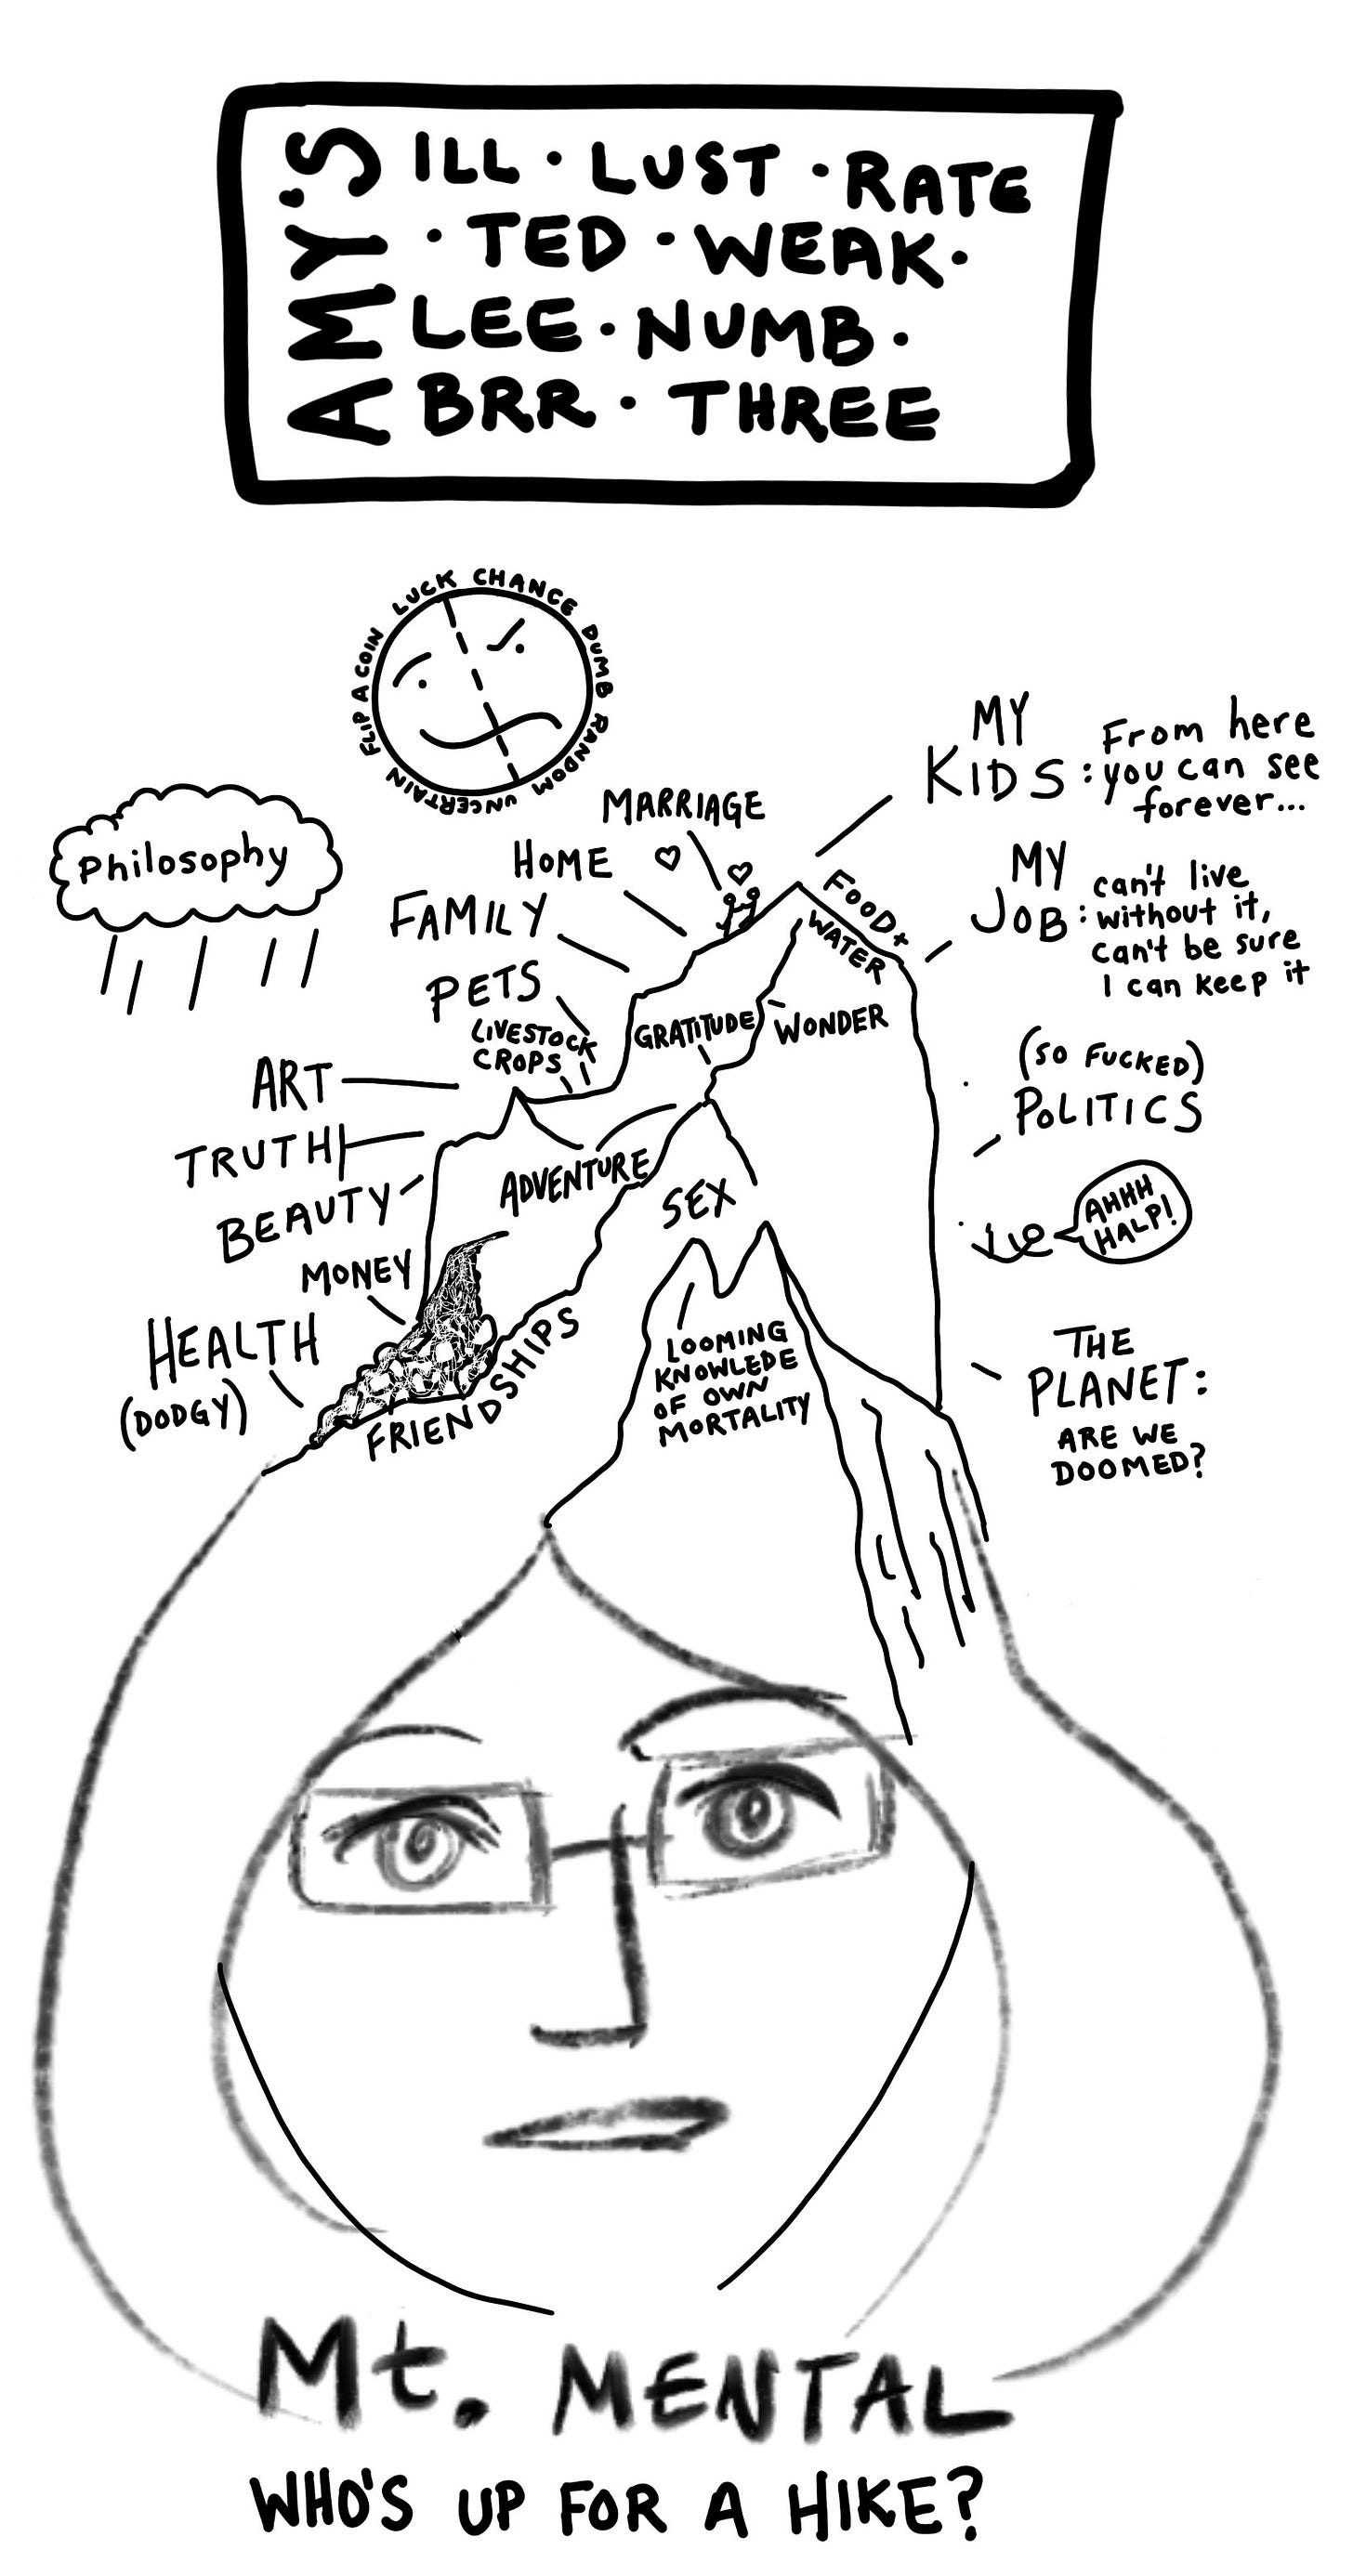 AMY'S
ILL · LUST · RATE
· TED · WEAK ·
LEE · NUMB ·
BRR · THREE
FLIP A COIN LUCK CHANCE DUMB RANDOM UNCERTAIN
Philosophy
MARRIAGE
HOME
FAMILY
PETS
LIVESTOCK
CROPS
ART
TRUTH
BEAUTY
MONEY
HEALTH
(DODGY)
MY
KIDS: From here
you can see
forever...
FOOD+
WATER
MY
JOB: can't live
without it,
can't be sure
I can keep it
GRATITUDE
WONDER
(SO FUCKED)
POLITICS
ADVENTURE
SEX
AHHH
HALP!
FRIENDSHIPS
LOOMING
KNOWLEDE
OF OWN
MORTALITY
THE
PLANET:
ARE WE
DOOMED?
Mt. MENTAL
WHO'S UP FOR A HIKE?